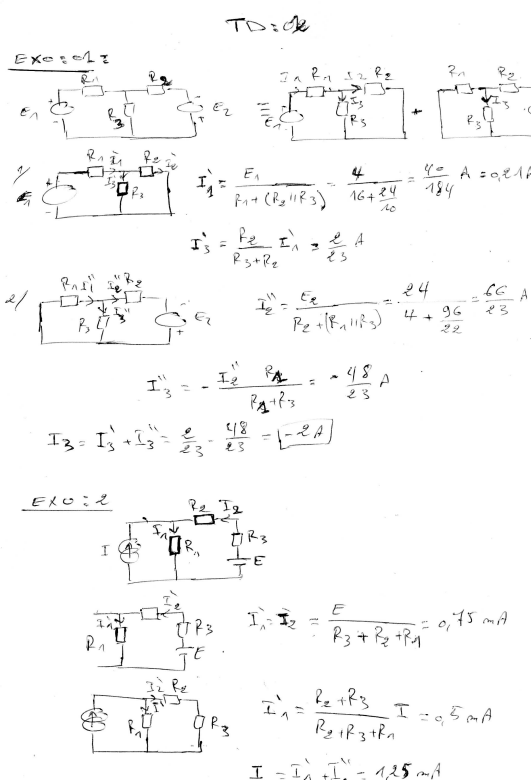 TD: 02
EXO: 01:
R1 R2 I1 R1 I2 R2 R1 R2
E1 R3 E2 ≡ E1 I3 R3 + R3 I3
1/ E1 R1 I'1 R2 I'2 I'3 R3 I'1 = E1 / (R1 + (R2 || R3)) = 4 / (16 + 24/10) = 40/184 A = 0,21A
I'3 = R2 / (R3 + R2) I'1 = 2/23 A
2/ R1 I''1 I''2 R2 R3 I''3 E2 I''2 = E2 / (R2 + (R1 || R3)) = 24 / (4 + 96/22) = 66/23 A
I''3 = - I''2 R1 / (R1 + R3) = - 48/23 A
I3 = I'3 + I''3 = 2/23 - 48/23 = -2A
EXO: 2
R2 I2
I I1 R1 R3
E
I'1 I'2 R1 R3 E I'1 = I2 = E / (R3 + R2 + R1) = 0,75 mA
I'2 R2 R1 R3 I'1 = (R2 + R3) / (R2 + R3 + R1) I = 0,5 mA
I = I'1 + I''1 = 1,25 mA